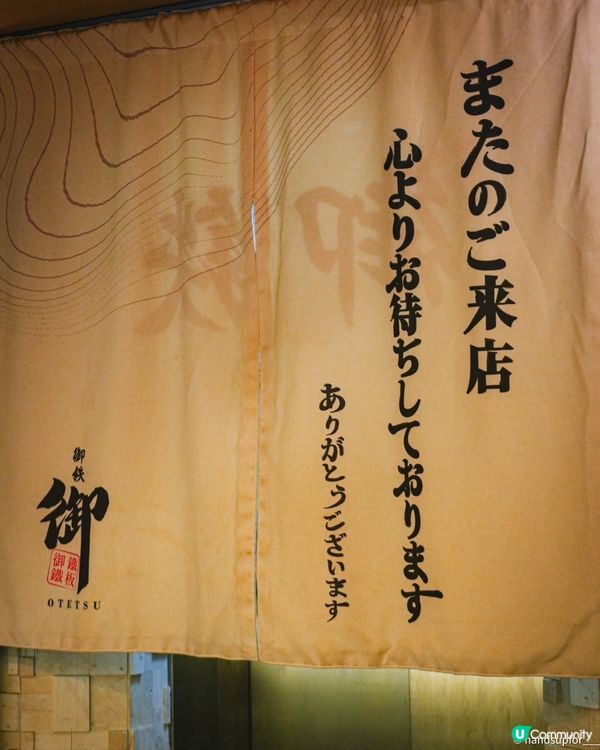 またのご来店
心よりお待ちしております
ありがとうございます
御鉄
御
御鐵
鐵板
OTETSU
U Community